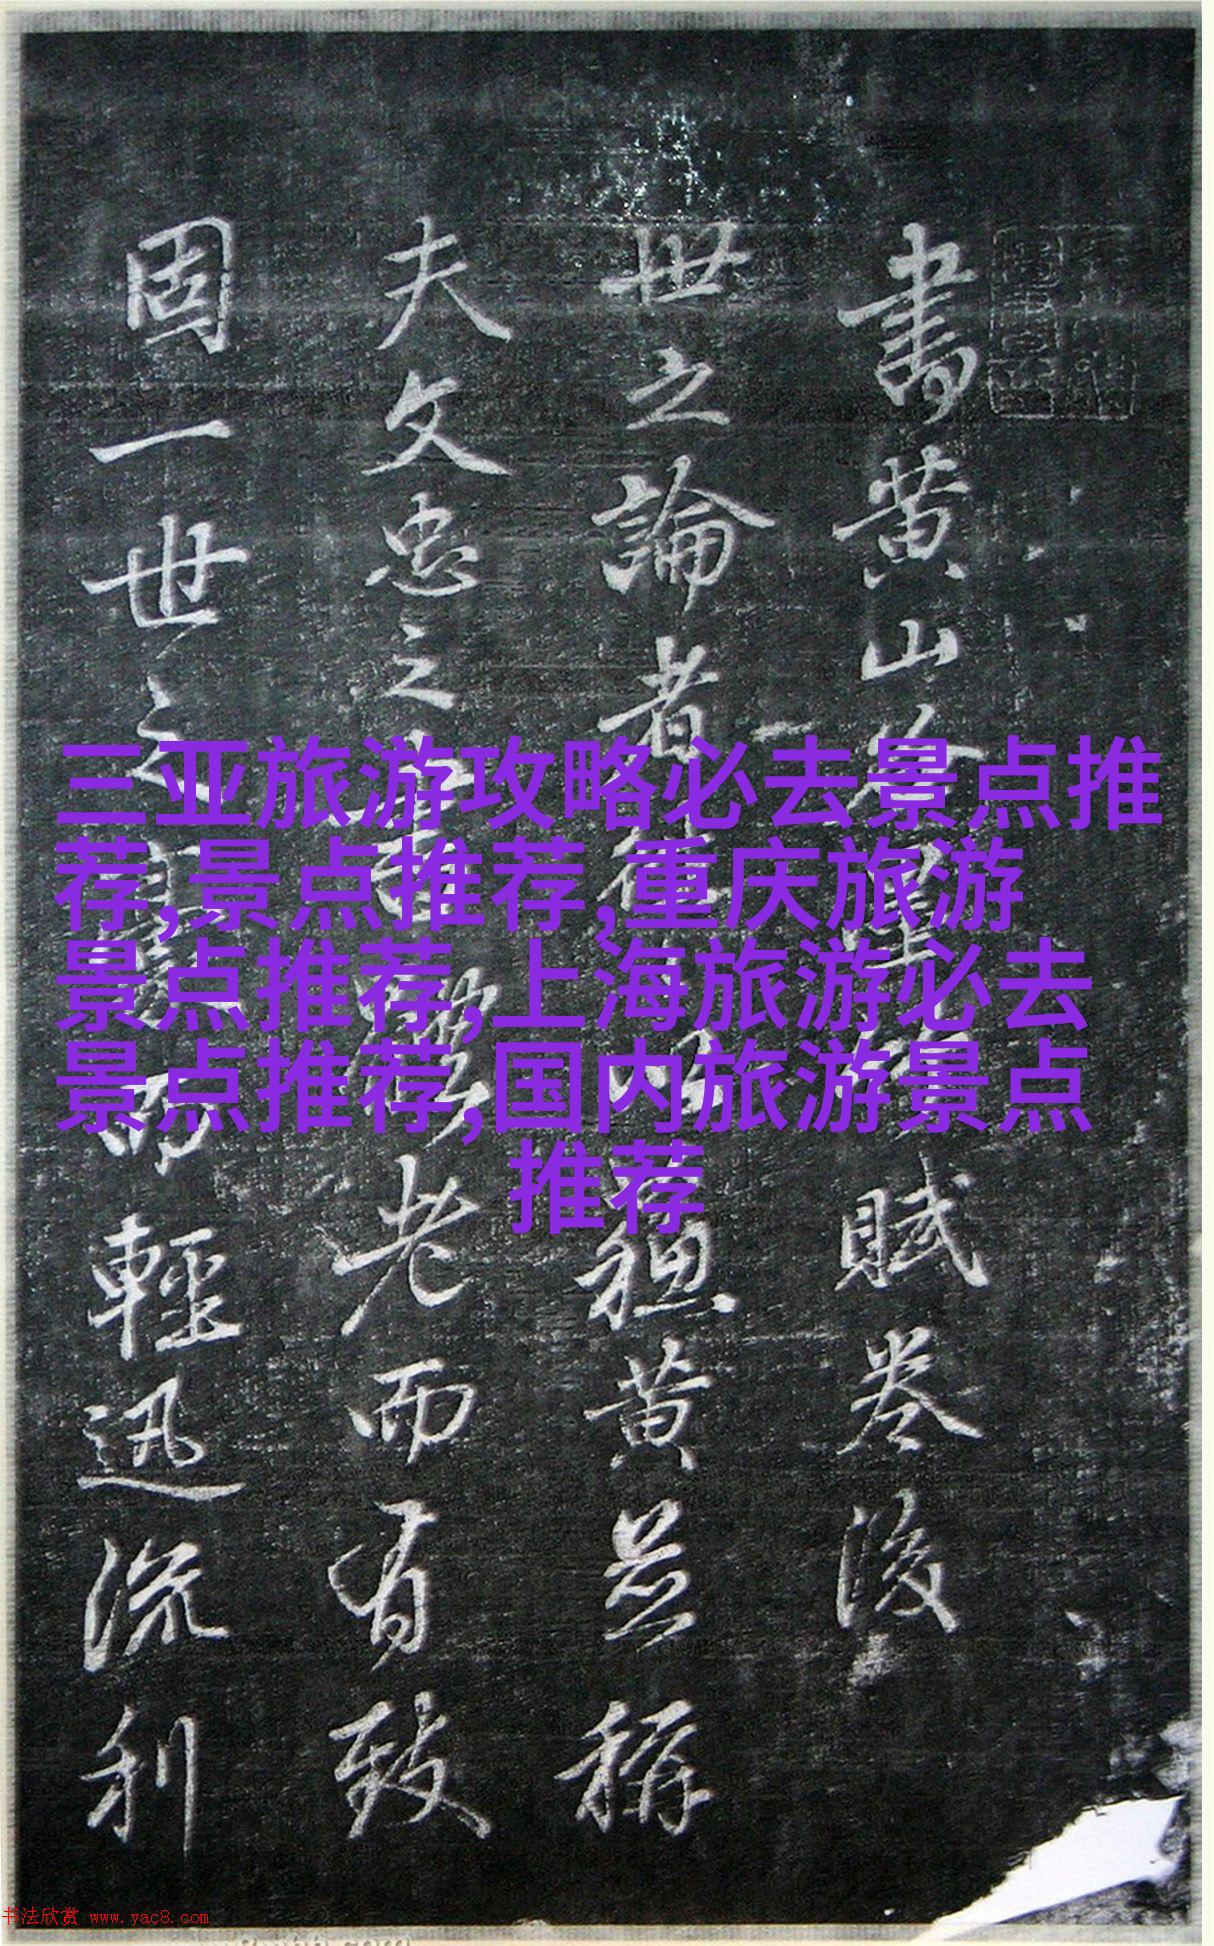 三亚旅游攻略必去景点推
荐,景点推荐,重庆旅游
景点推荐,上海旅游必去
景点推荐,国内旅游景点
推荐
書黄山谷 賦卷後
世之論者 穌黄並稱
夫文忠之 老而有致
固一世之 而輕迅流利
书法欣赏 www.yac8.com